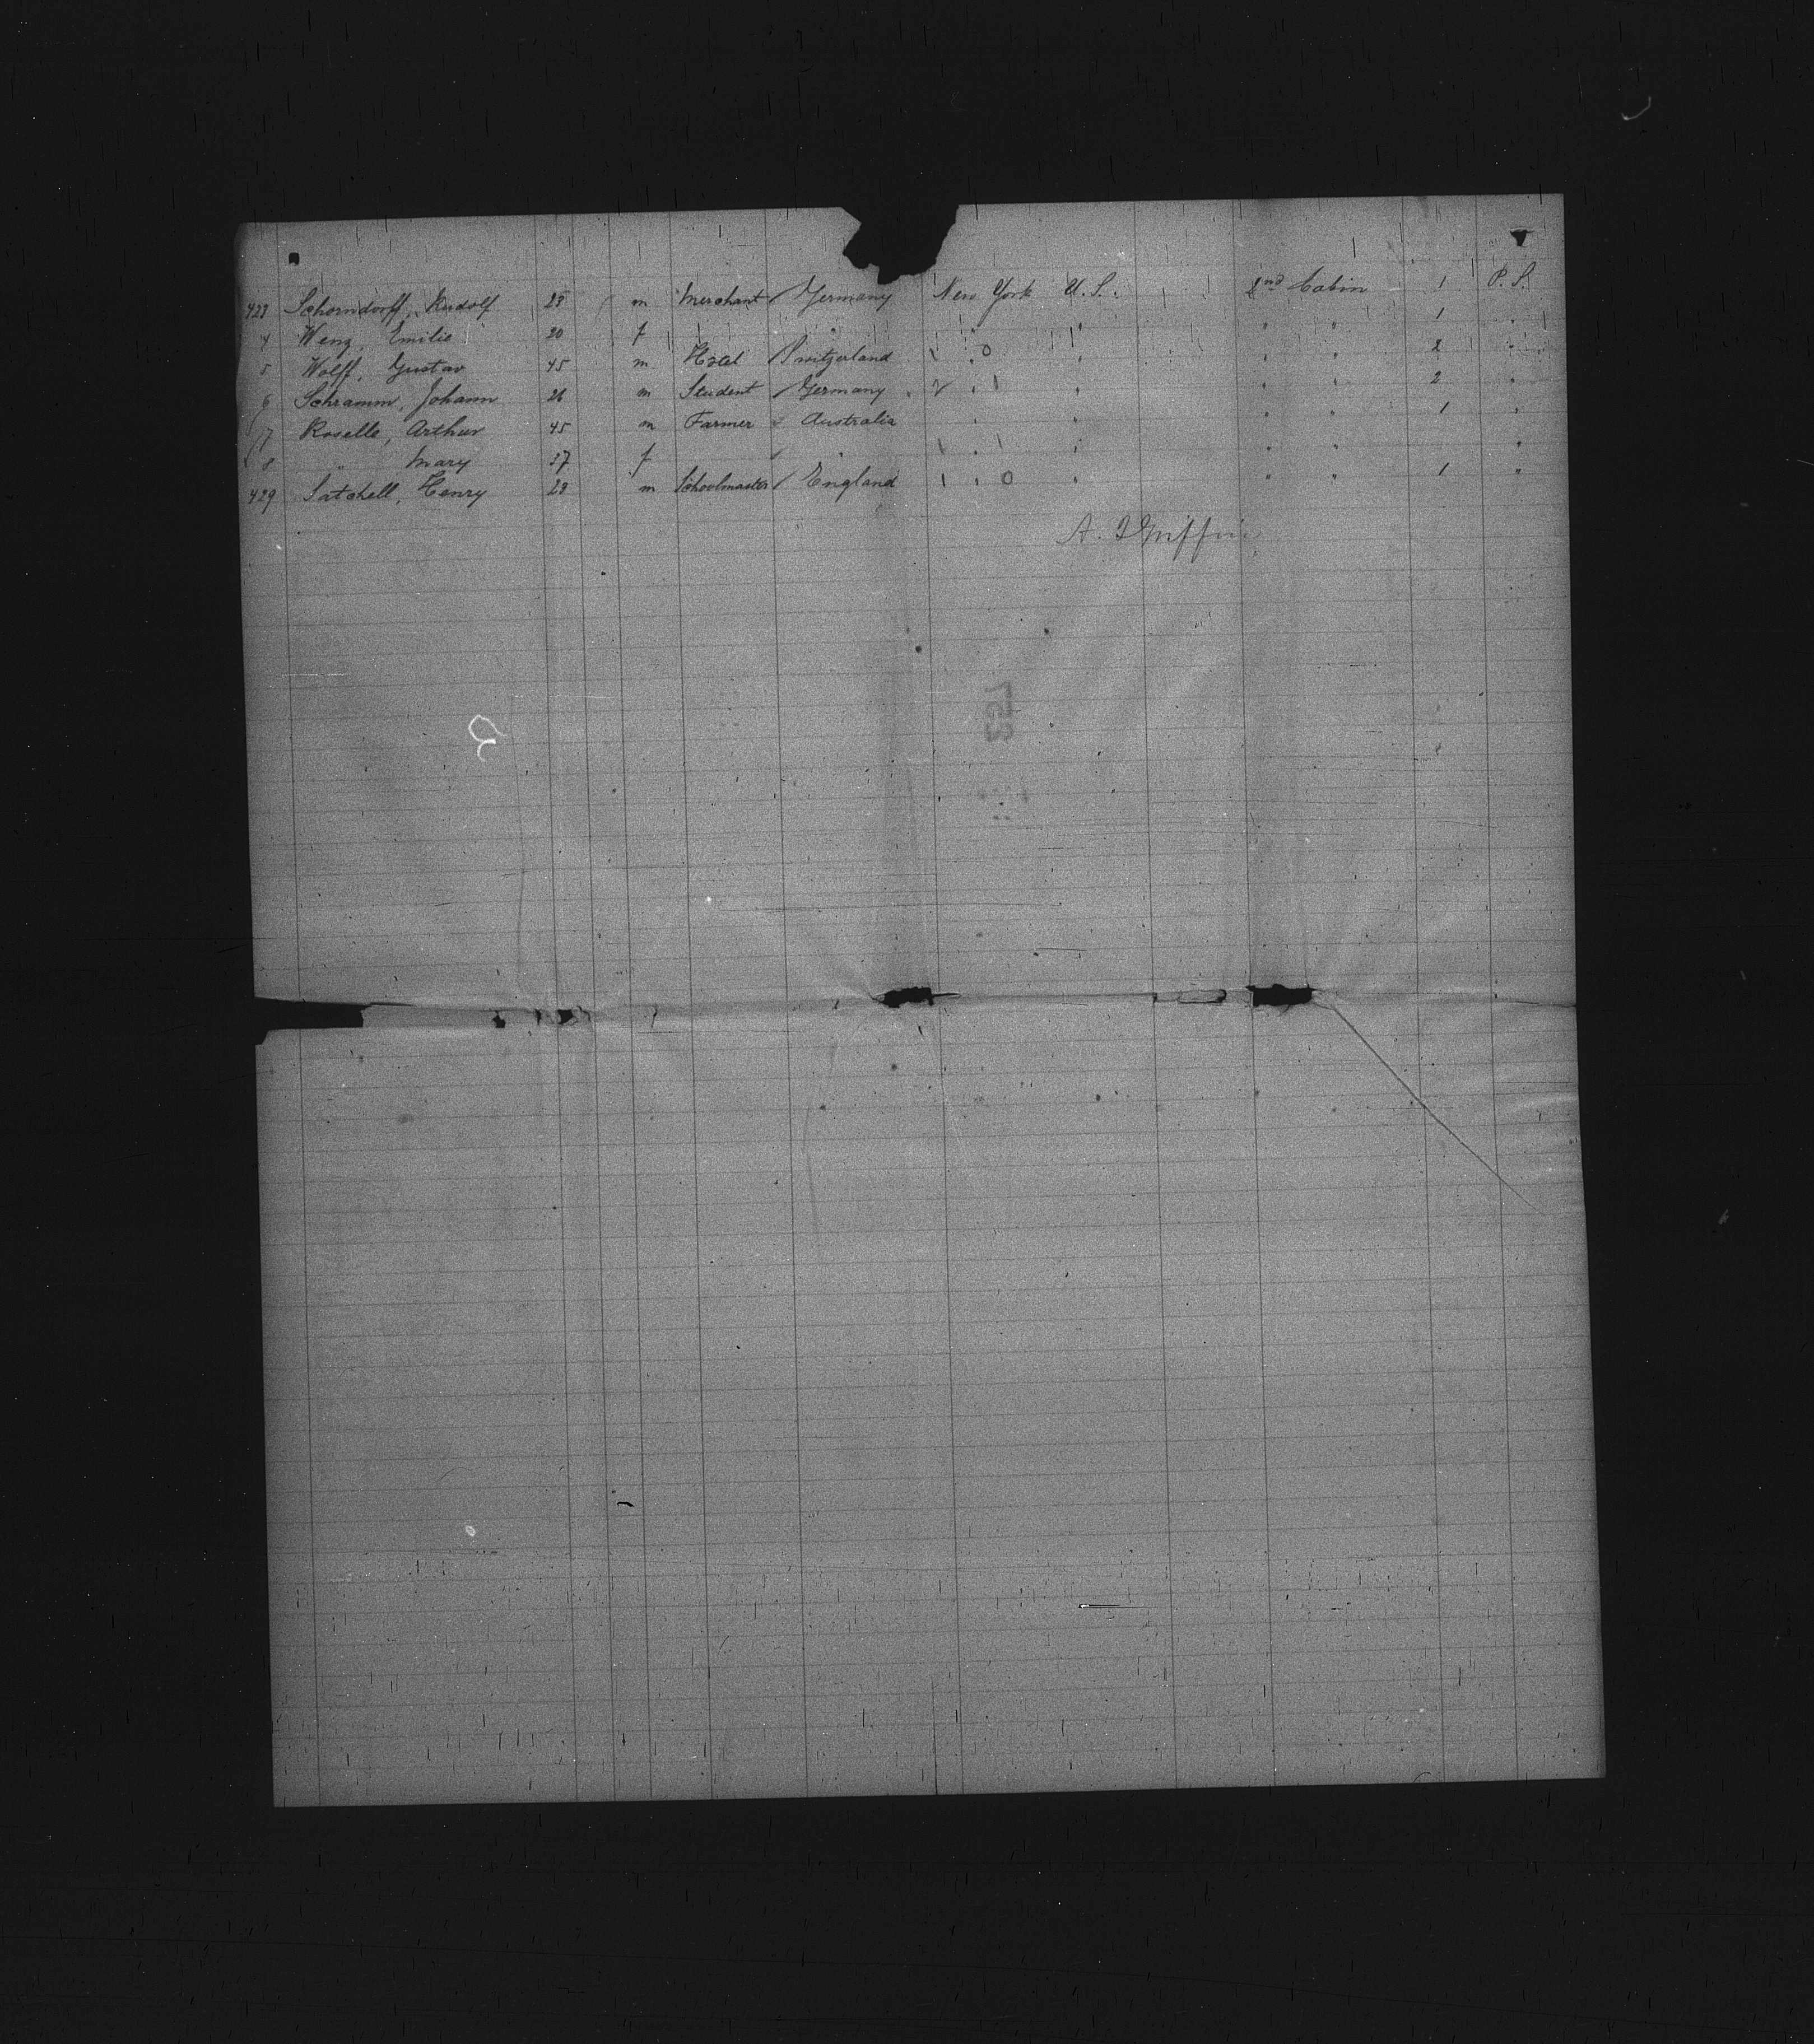 423 Schorndorff, Rudolf 28 m Merchant Germany New York U.S. 2nd Cabin 1 P.S.
4 Wenz, Emilie 20 f " " " " " 1 "
5 Wolff, Gustav 45 m Hotel Switzerland " 0 " " " 2 "
6 Schramm, Johann 26 m Student Germany " 1 " " " 2 "
7 Roselle, Arthur 45 m Farmer Australia " " " " 1 "
8 " Mary 37 f " " 1 " " " "
429 Satchell, Henry 28 m Schoolmaster England 1 " 0 " " " 1 "
A. Griffin
753